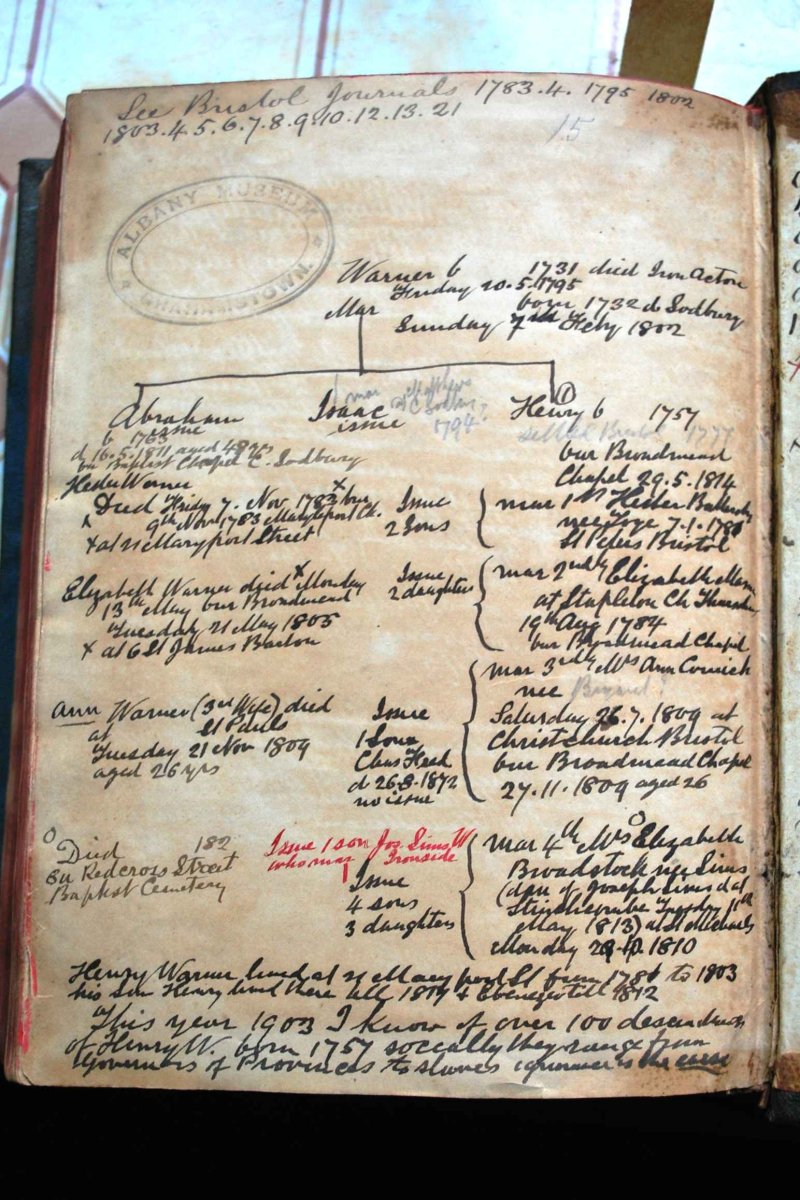 See Bristol Journals 1783.4. 1795 1802
1803.4.5.6.7.8.9.10.12.13.21
15
ALBANY MUSEUM
GRAHAMSTOWN.
Warner b 1731 died Iron Acton
Friday 20.5.1795
Mar born 1732 d Sodbury
Sunday 7th Feby 1802
Abraham
b 1763
issue
d 16.5.1811 aged 48 yrs
bu Baptist Chapel C. Sodbury
Isaac
issue
mar
1794
1
Henry b 1757
settled Bristol 1777
bur Broadmead
Chapel 29.5.1814
Hester Warner
Died Friday 7. Nov 1783 x bur
9th Nov 1783 Maryleport Ch.
x at 21 Maryport Street
Issue
2 Sons
mar 1st Hester
nee
St Peters Bristol
Elizabeth Warner died x Monday
13th May bur Broadmead
Tuesday 21 May 1805
x at 6 St James Barton
Issue
2 daughters
mar 2ndly Elizabeth
at Stapleton Ch Thursday
19th Aug 1784
bur Broadmead Chapel
Ann Warner (3rd Wife) died
at St Pauls
Tuesday 21 Nov 1809
aged 26 yrs
Issue
1 Son
Chas Head
d 26.8.1872
no issue
mar 3rdly Mrs Ann
nee
Saturday 26.7.1809 at
Christchurch Bristol
bur Broadmead Chapel
27.11.1809 aged 26
O
Died 182
Bu Redcross Street
Baptist Cemetery
Issue 1 son Jos. Sims W
who mar Ironside
Issue
4 sons
3 daughters
mar 4th Mrs Elizabeth
Broadstock nee Sims
(dau of Joseph Sims d at
Stinchcombe Tuesday 11th
May 1813) at St Michaels
Monday 29.10.1810
Henry Warner lived at 21 Mary port St from 1786 to 1803
his son Henry lived there till 1819 & Ebenezer till 1812
This year 1903 I know of over 100 descendants
of Henry W. born 1757 socially they range from
Governors of Provinces to slaves